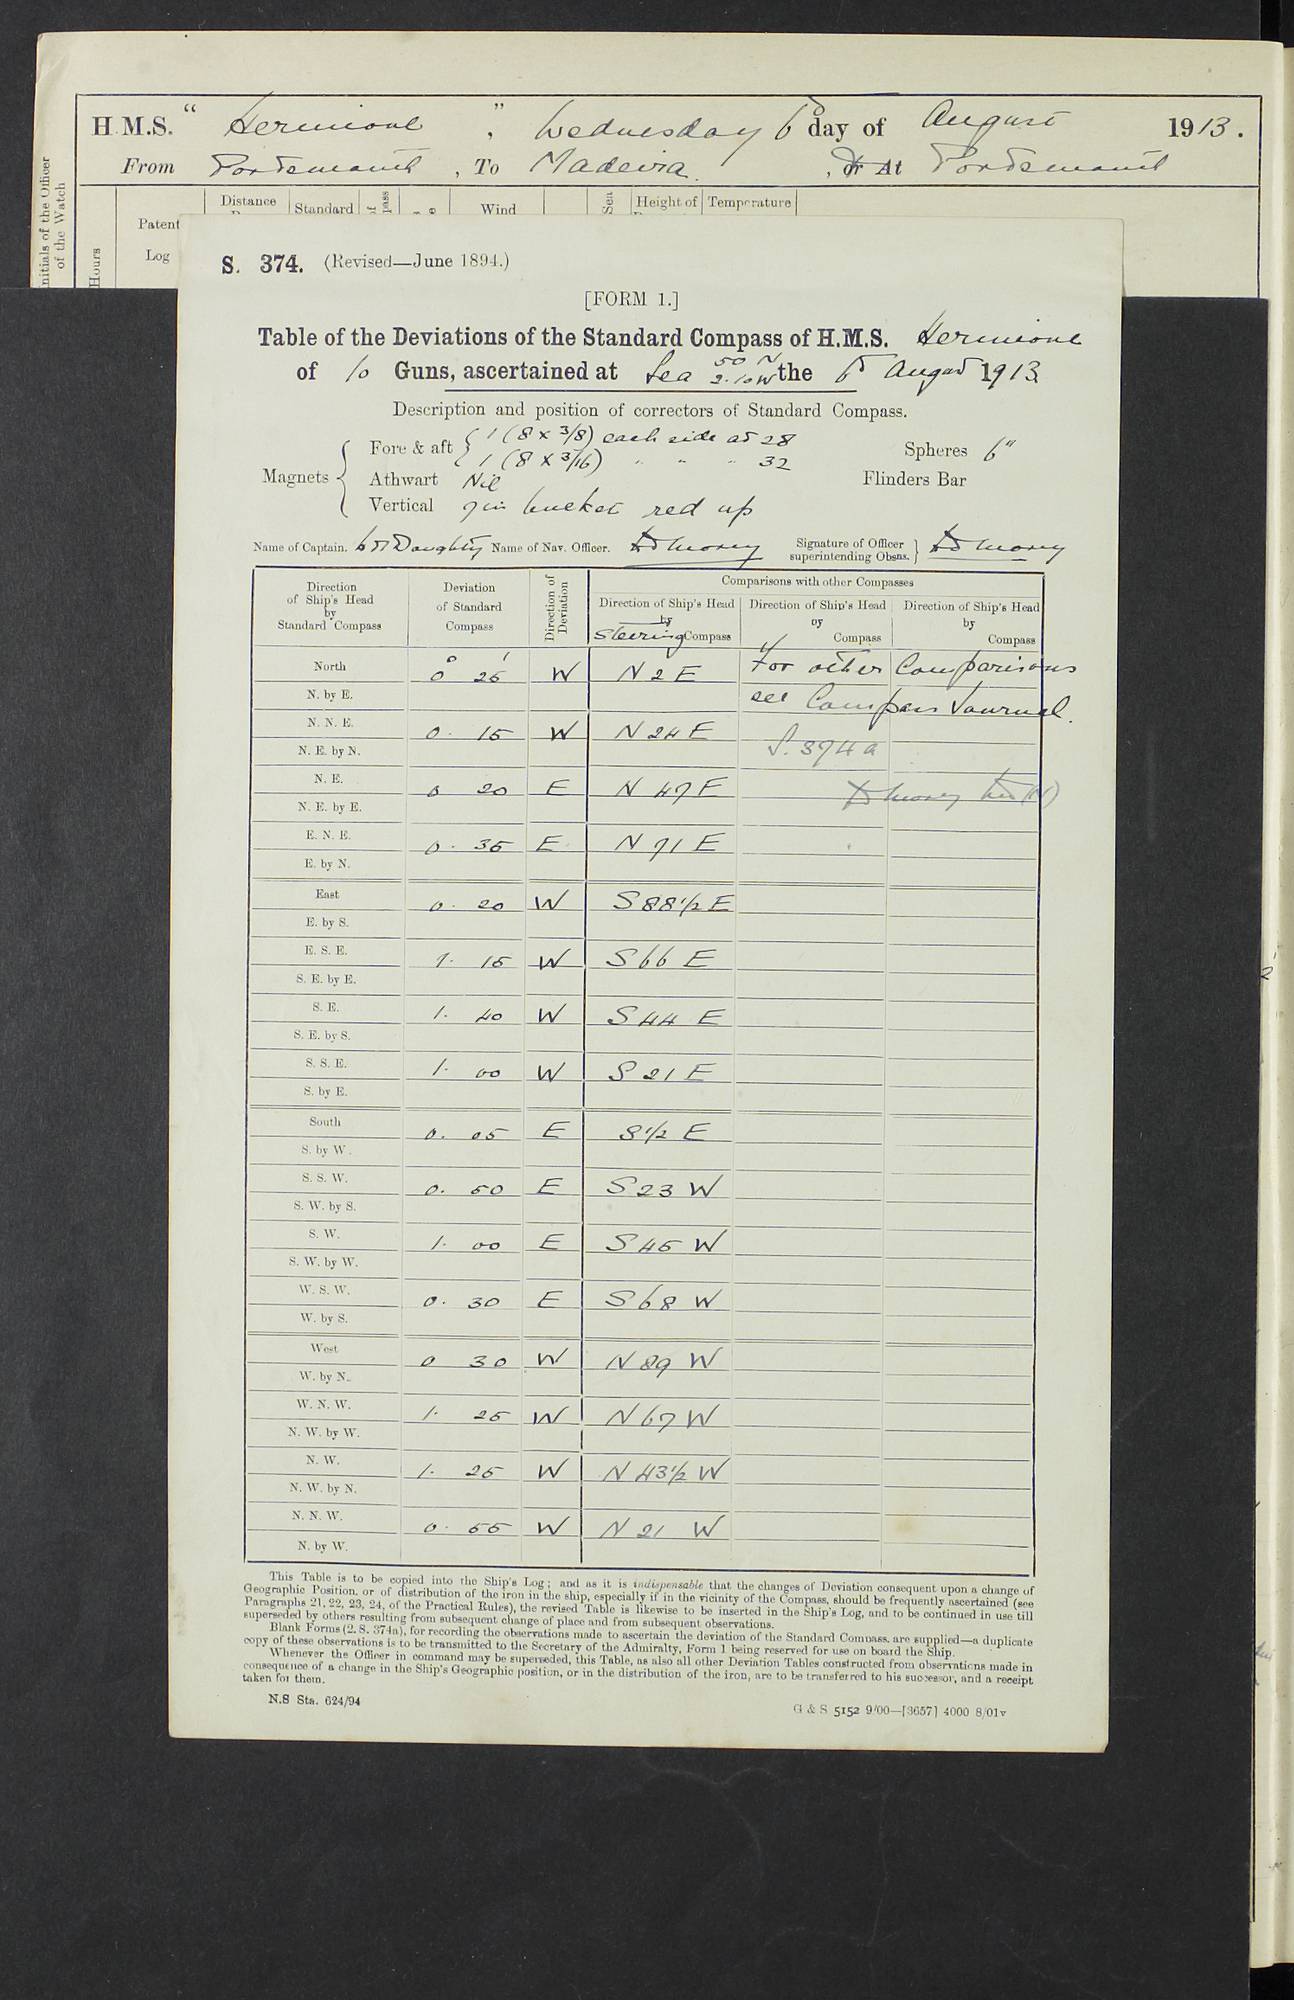 H.M.S. “ Hermione ”, Wednesday 6th day of August 1913.
From Portsmouth, To Madeira, or At Portsmouth
Initials of the Officer of the Watch
Hours
Patent Log
Distance
Standard
Wind
Sea
Height of
Temperature
S. 374. (Revised—June 1894.)
[FORM 1.]
Table of the Deviations of the Standard Compass of H.M.S. Hermione
of 10 Guns, ascertained at Sea 50 N 2.10W the 6th August 1913
Description and position of correctors of Standard Compass.
Magnets
Fore & aft { 1 (8 x 3/8) each side at 28
1 (8 x 3/16) " " " 32
Spheres 6"
Athwart Nil
Flinders Bar
Vertical 7 in bucket red up
Name of Captain. Doughty Name of Nav. Officer. Signature of Officer superintending Obsns.
Direction of Ship's Head by Standard Compass
Deviation of Standard Compass
Direction of Deviation
Comparisons with other Compasses
Direction of Ship's Head by Steering Compass
Direction of Ship's Head by Compass
Direction of Ship's Head by Compass
North 0° 25' W N 2 E For other Comparisons
N. by E. see Compass Journal.
N. N. E. 0. 15 W N 24 E
N. E. by N. S. 374a
N. E. 0 20 E N 47 E
N. E. by E.
E. N. E. 0. 35 E N 71 E
E. by N.
East 0. 20 W S 88 1/2 E
E. by S.
E. S. E. 1. 15 W S 66 E
S. E. by E.
S. E. 1. 40 W S 44 E
S. E. by S.
S. S. E. 1. 00 W S 21 E
S. by E.
South 0. 05 E S 1/2 E
S. by W.
S. S. W. 0. 50 E S 23 W
S. W. by S.
S. W. 1. 00 E S 45 W
S. W. by W.
W. S. W. 0. 30 E S 68 W
W. by S.
West 0 30 W N 89 W
W. by N.
W. N. W. 1. 25 W N 67 W
N. W. by W.
N. W. 1. 25 W N 43 1/2 W
N. W. by N.
N. N. W. 0. 55 W N 21 W
N. by W.
This Table is to be copied into the Ship's Log; and as it is indispensable that the changes of Deviation consequent upon a change of
Geographic Position, or of distribution of the iron in the ship, especially if in the vicinity of the Compass, should be frequently ascertained (see
Paragraphs 21, 22, 23, 24, of the Practical Rules), the revised Table is likewise to be inserted in the Ship's Log, and to be continued in use till
superseded by others resulting from subsequent change of place and from subsequent observations.
Blank Forms (2. S. 374a), for recording the observations made to ascertain the deviation of the Standard Compass, are supplied—a duplicate
copy of these observations is to be transmitted to the Secretary of the Admiralty, Form 1 being reserved for use on board the Ship.
Whenever the Officer in command may be superseded, this Table, as also all other Deviation Tables constructed from observations made in
consequence of a change in the Ship's Geographic position, or in the distribution of the iron, are to be transferred to his successor, and a receipt
taken for them.
N.S Sta. 624/94
G & S 5152 9/00—[3657] 4000 8/01v